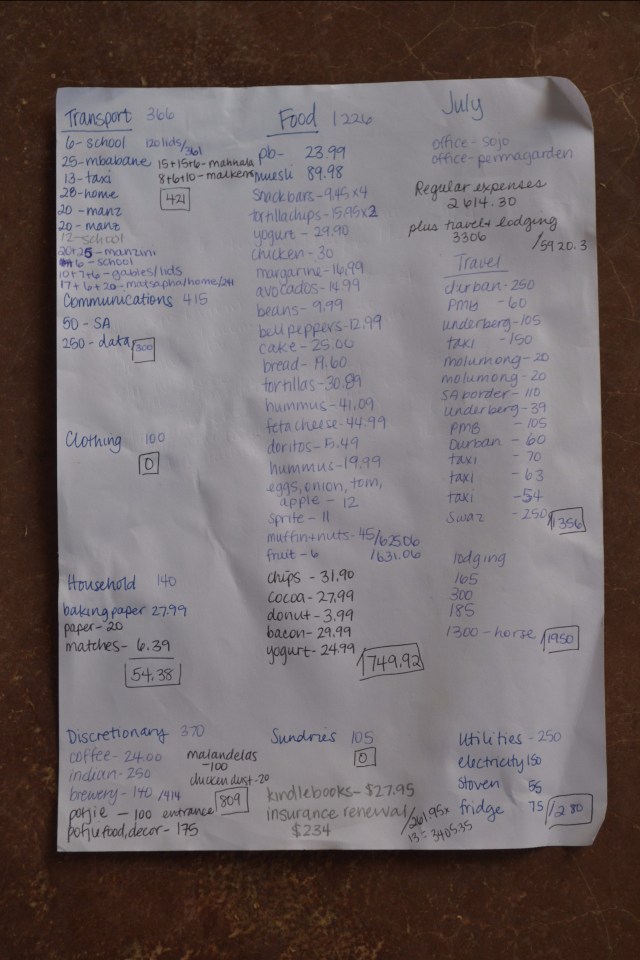 July
Transport 366
6-school 120lids/361
25-mbabane 15+15+6-mahhala
13-taxi 8+6+10-malkerns
28-home
421
20-manz
20-manz
12-school
20+25-manzini
6-school
10+7+6-gables/lids
17+6+20-matsapha/home/241
Communications 415
50-SA
250-data 300
Clothing 100
0
Household 140
baking paper 27.99
paper-20
matches-6.39
54.38
Discretionary 370
coffee-24.00
indian-250
brewery-140/414
potjie-100 entrance
potju food, decor-175
malandelas
-100
chicken dust-20
809
Food 1226
pb-23.99
muesli 89.98
snack bars-9.45x4
tortilla chips-15.95x2
yogurt-29.90
chicken-30
margarine-16.99
avocados-14.99
beans-9.99
bell peppers-12.99
cake-25.00
bread-19.60
tortillas-30.89
hummus-41.09
feta cheese-44.99
doritos-15.49
hummus-19.99
eggs, onion, tom,
apple-12
sprite-11
muffin+nuts-45/625.06
fruit-6 /631.06
chips-31.90
cocoa-27.99
donut-3.99
bacon-29.99
yogurt-24.99
749.92
Sundries 105
0
kindle books-$27.95
insurance renewal
$234
/261.95x
13=3405.35
office-sojo
office-permagarden
Regular expenses
2614.30
plus travel+lodging
3306
/5920.3
Travel
durban-250
PMB-60
underberg-105
taxi-150
molumong-20
molumong-20
SA border-110
underberg-39
PMB-105
Durban-60
taxi-70
taxi-63
taxi-54
Swaz-250
1356
lodging
165
300
185
1300-horse
1950
Utilities-250
electricity 150
stoven 55
fridge 75
280